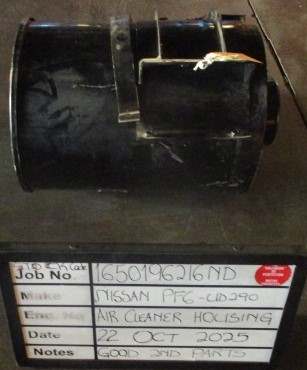 Stock Cat
Job No. 1650196216ND
Make NISSAN PF6 - UD290
Eng. No AIR CLEANER HOUSING
Date 22 OCT 2025
Notes GOOD 2ND PARTS